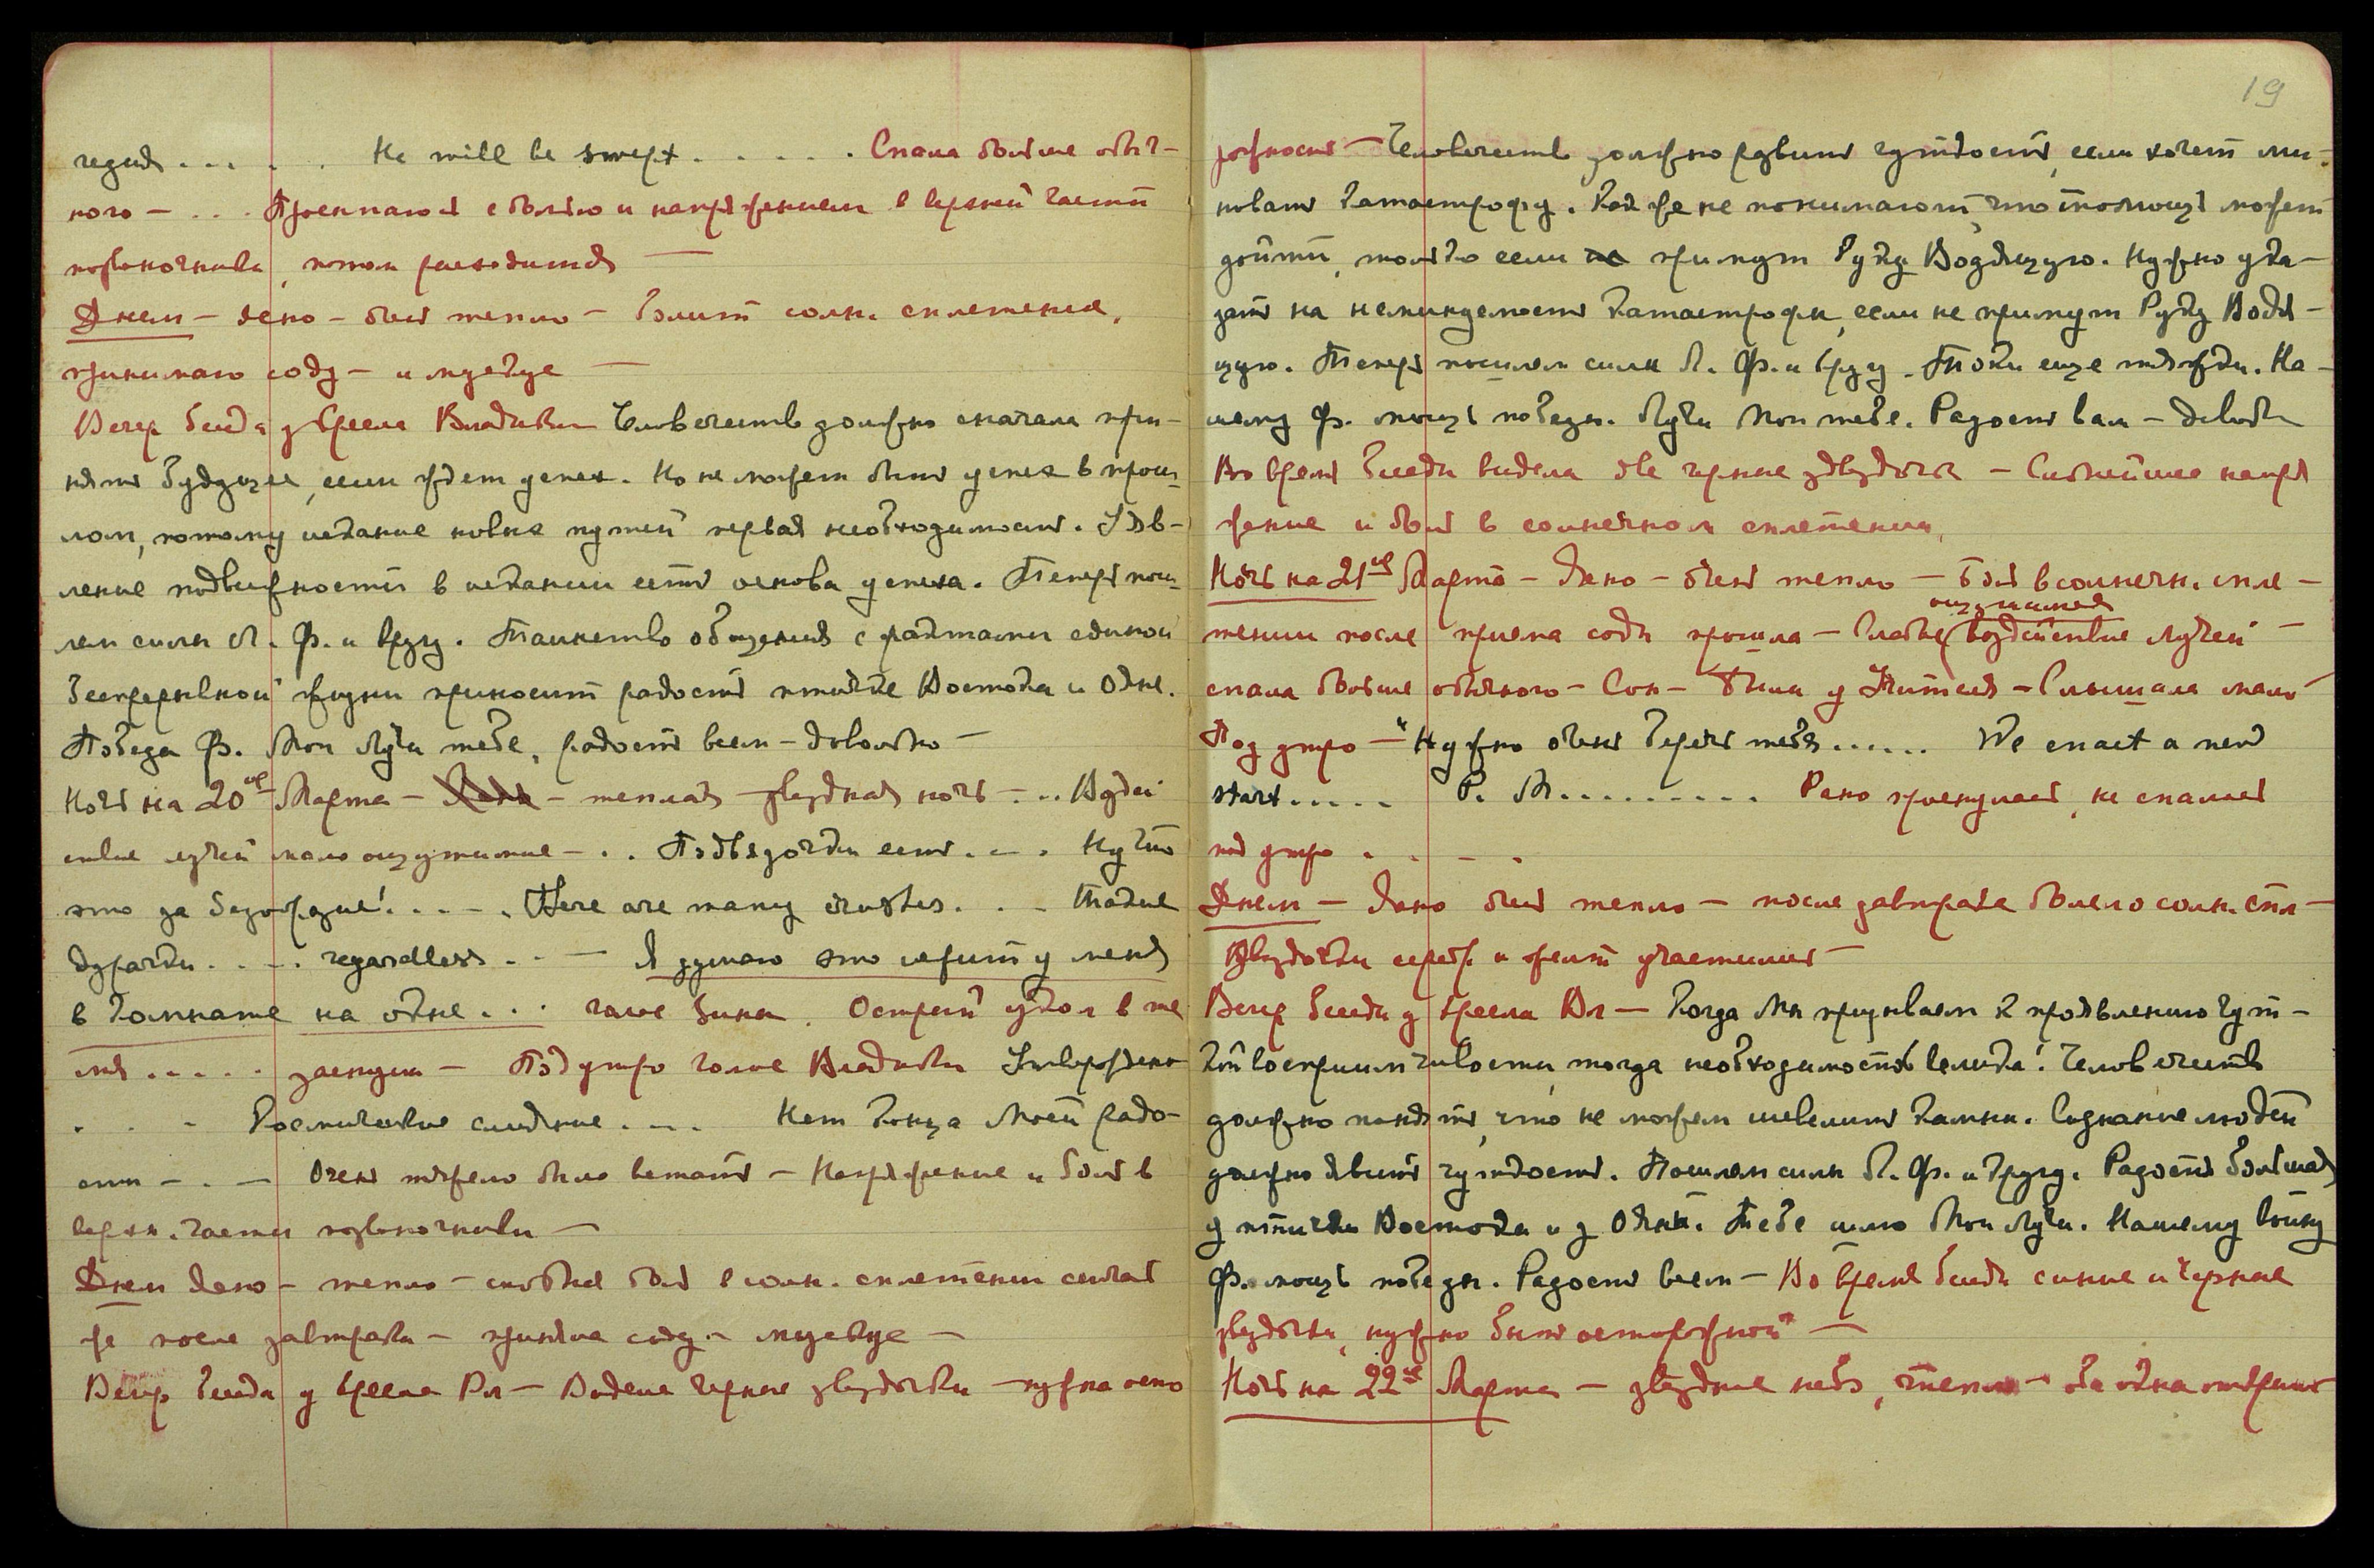 He will be swept . . . . . . Спала больше обыч-
ного — . . . Просыпаюсь с болью и напряжением в верхней части
позвоночника, потом расходится —
Днем — ясно — очень тепло — болит солн. сплетение,
принимаю соду — и мускус —
Вечер. беседа у кресла Владыки — Человечество должно сначала при-
нять будущее, если ждет успех. Но не может быть успех в прош-
лом, потому искание новых путей первая необходимость. Явв-
ление подвижности в искании есть основа успеха. Теперь пош-
лем силы Л. Ф. и другу. Таинство общения с фактами единой
беспрерывной жизни приносит радость птичке Востока и Ояне.
Победа Ф. Мои Лучи тебе, радость всем — довольно —
Ночь на 20ое Марта — — теплая звездная ночь — . . Воздей
ствие лучей мало ощутимые — . . есть . — . Ну что
это за безобразие! . . . — . There are many crushes . . . — Такие
дураки . . — . . regardless . . — Я думаю это лежит у меня
в комнате на окне . . . голос Зины . Острый укол в те
мя . . . . . заснула — Под утро голос Владыки Утверждено
. . - Космическое слияние . . . . Нет конца Моей радо-
сти — . — Очень тяжело было вставать — Напряжение и боль в
верхн. части позвоночника —
Днем ясно — тепло — боль в солн. сплетении сейчас
же после завтрака — приняла соду — мускус —
Вечер беседа у кресла Вл — Видела черные звездочки — нужна осто
19
рожность — Человечество должно явить чуткость, если хочет ми-
новать катастрофу. Как же не понимают, что помощь может
дойти, только если примут Руку Водящую. Нужно ука-
зать на неминуемость катастрофы, если не примут Руку Водя-
щую. Теперь пошлем силы Л. Ф. и другу. Токи еще тяжки. На-
шему Ф. мощь победы. Лучи Мои тебе. Радость вам — довольно
Во время беседы видела две черные звездочки — Сильнейшее напря
жение и боль в солнечном сплетении.
Ночь на 21ое Марта — Ясно — очень тепло — боль в солнечн. спле —
ощущалось
тении после приема соды прошла — слабее воздействие лучей —
спала больше обычного — Сон — были у Учителя — Слышала мало
Под утро — "Нужно очень беречь тебя . . . . . . We enact a new
start . . . . . Р. М. . . . . . . . . . Рано проснулась, не спалось
под утро . . — .
Днем — Ясно очень тепло — после завтрака болело солн. спл —
Звездочки серебр. и желт участились —
Вечер беседы у кресла Вл — Когда Мы призываем к проявлению чут-
кой восприимчивости, тогда необходимость велика! Человечество
должно понять, что не может шевелить камни. Сознание людей
должно явить чуткость. Пошлем силы Л. Ф. и другу. Радость большая
у птички Востока и у Ояны. Тебе шлю Мои Лучи. Нашему воину
Ф. мощь победы. Радость всем — Во время беседы синие и черные
звездочки, нужно быть осторожной" —
Ночь на 22ое Марта — звездное небо, тепло — оба окна открыты